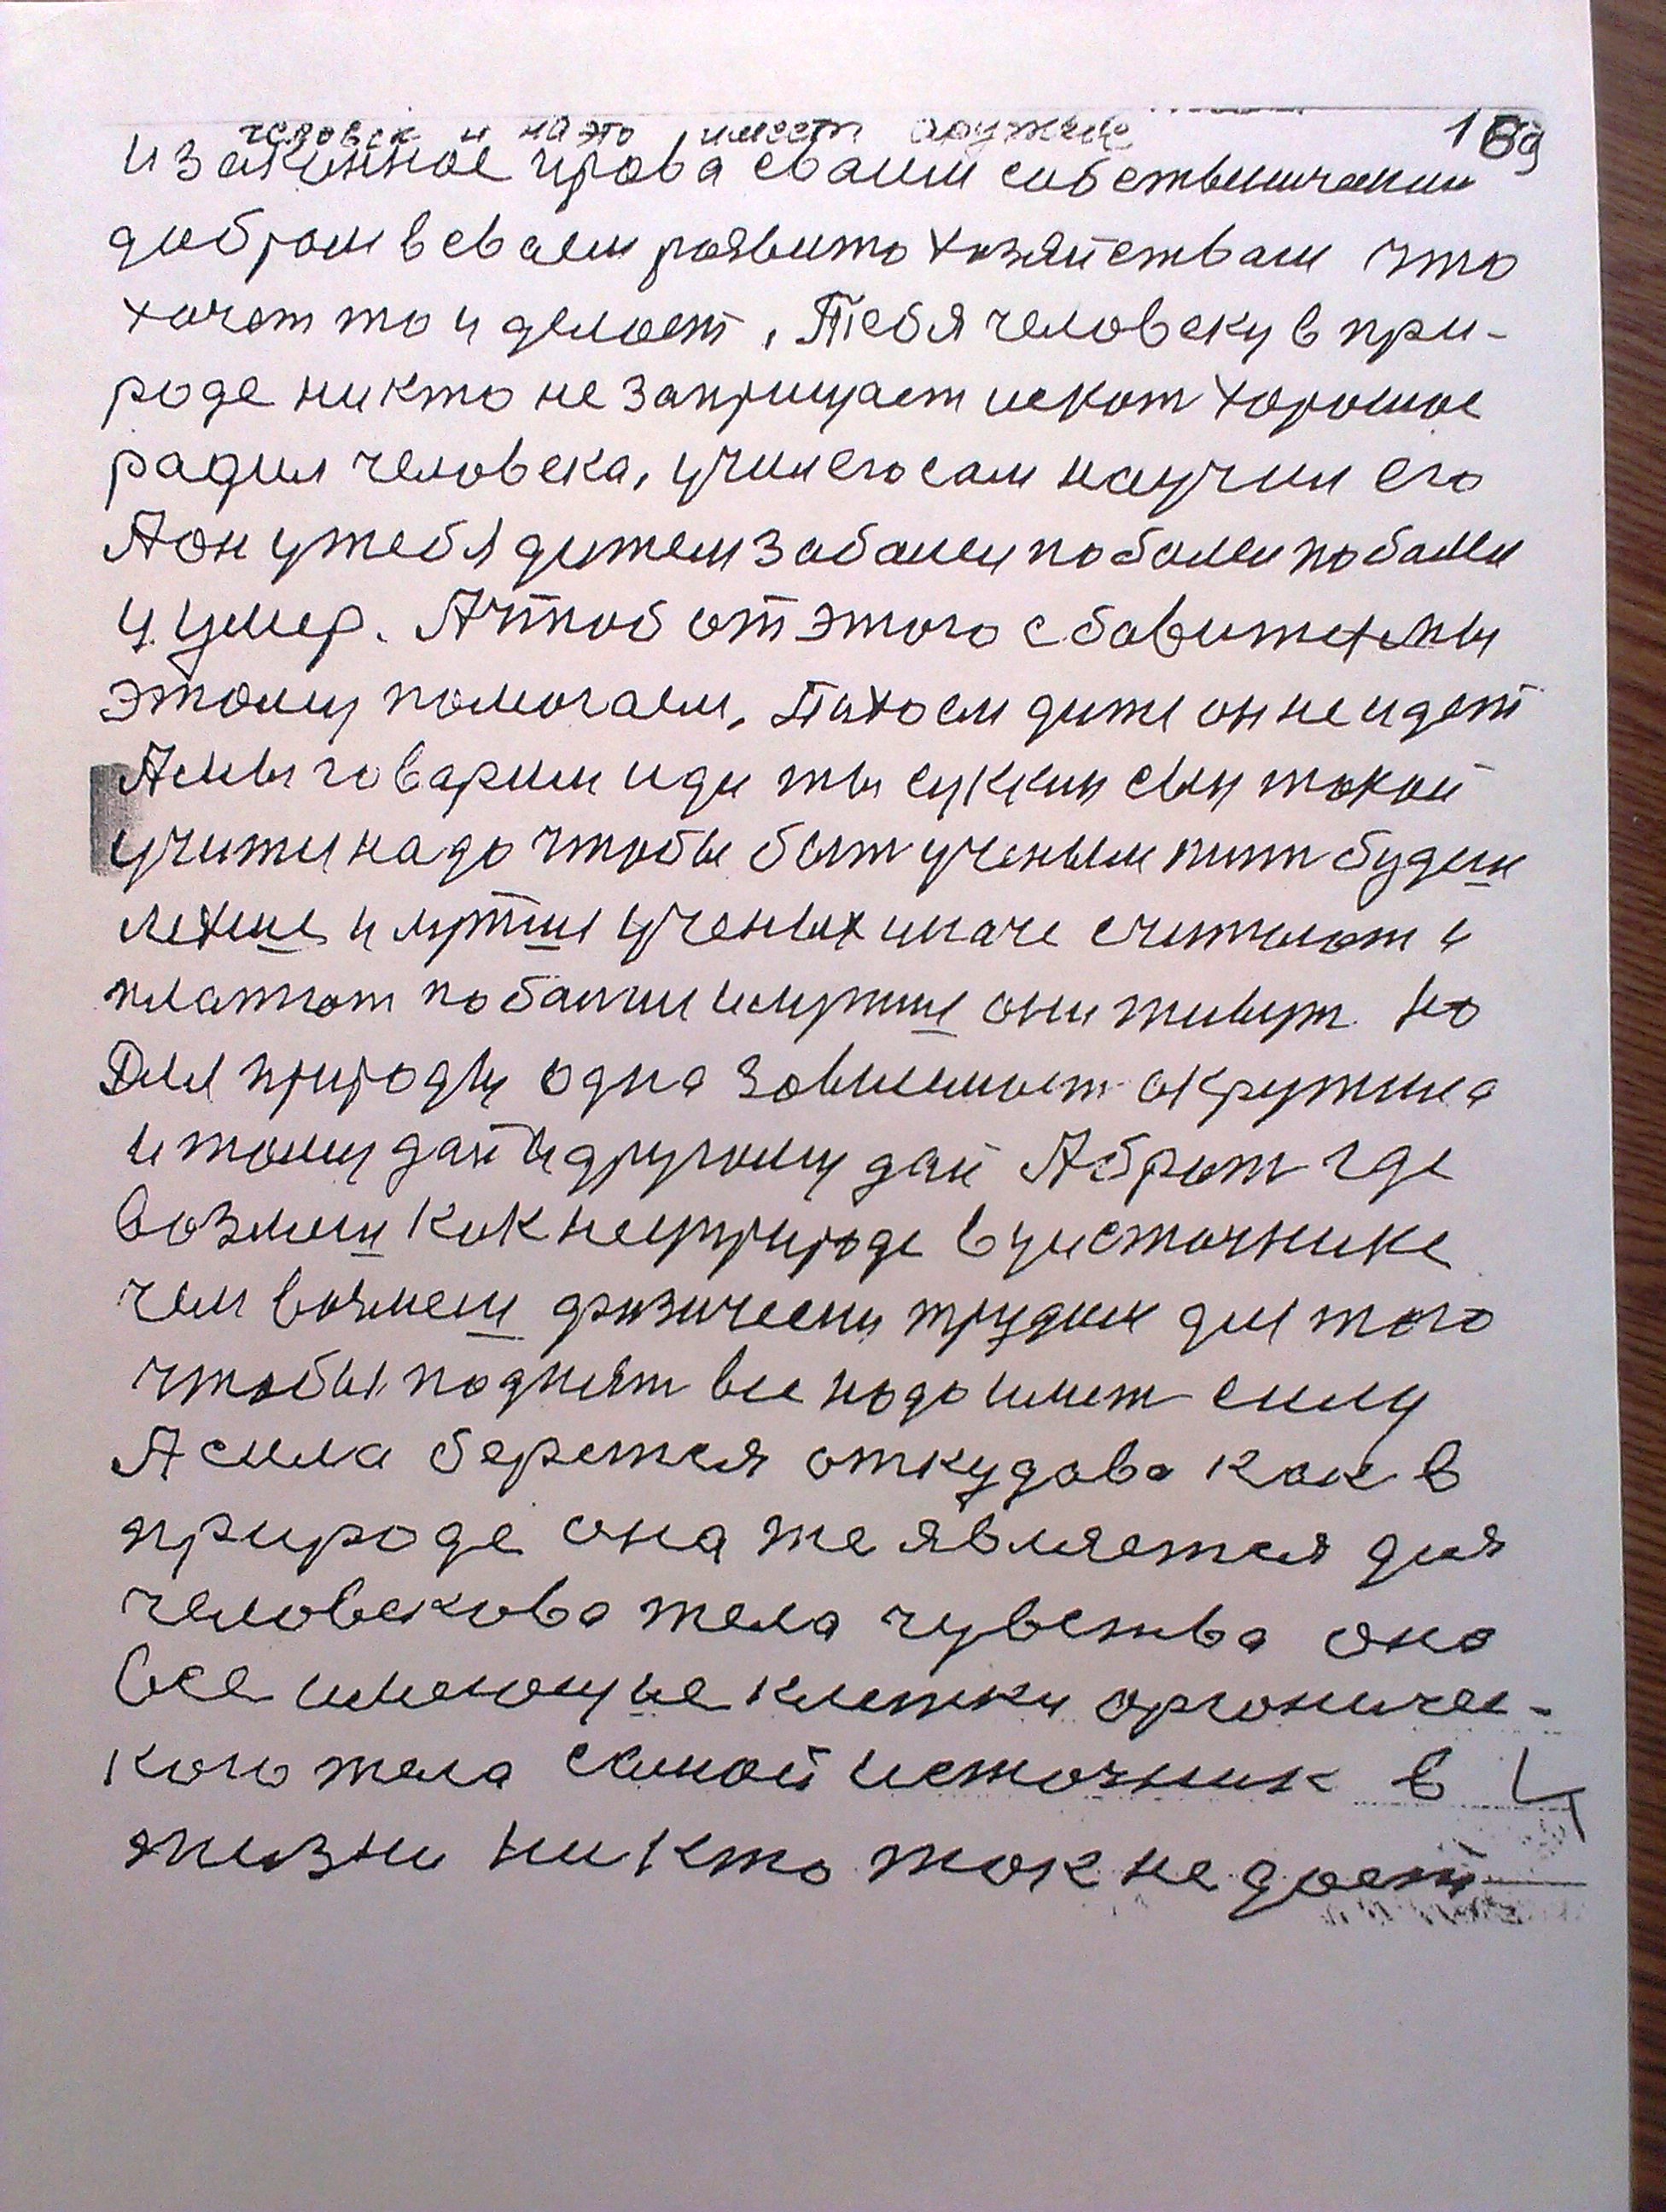 человек и на это имеет оружие 189
и законное права сваим собственическим
добром в сваем развито хозяйствам что
хочет то и делает, Тебя человеку в при-
роде никто не заприщает искат хорошое
радил человека, учил его сам научил его
А он у тебя дитем заболел поболел поболел
и умер. А чтоб от этого сбавитехмы
этому помогаем, Плохоем диже он не идет
А мы говарим иди ты суккин сын токой
учити надо чтобы быт ученым жит будеш
лехше и лутше ученых иначе считают и
платют по балши илутше они живут но
Для природы одна зависимост окружила
и тому дай и другому дай А брат где
возмеш как не уприроде в уисточнике
чем возмеш физически трудим для того
чтобы поднят все надо имет силу
А сила беретия откудова как в
природе она же является для
человекова тела чувства она
все имеющие клетки органичес-
кого тела самой источник в
жизни никто ток не дает